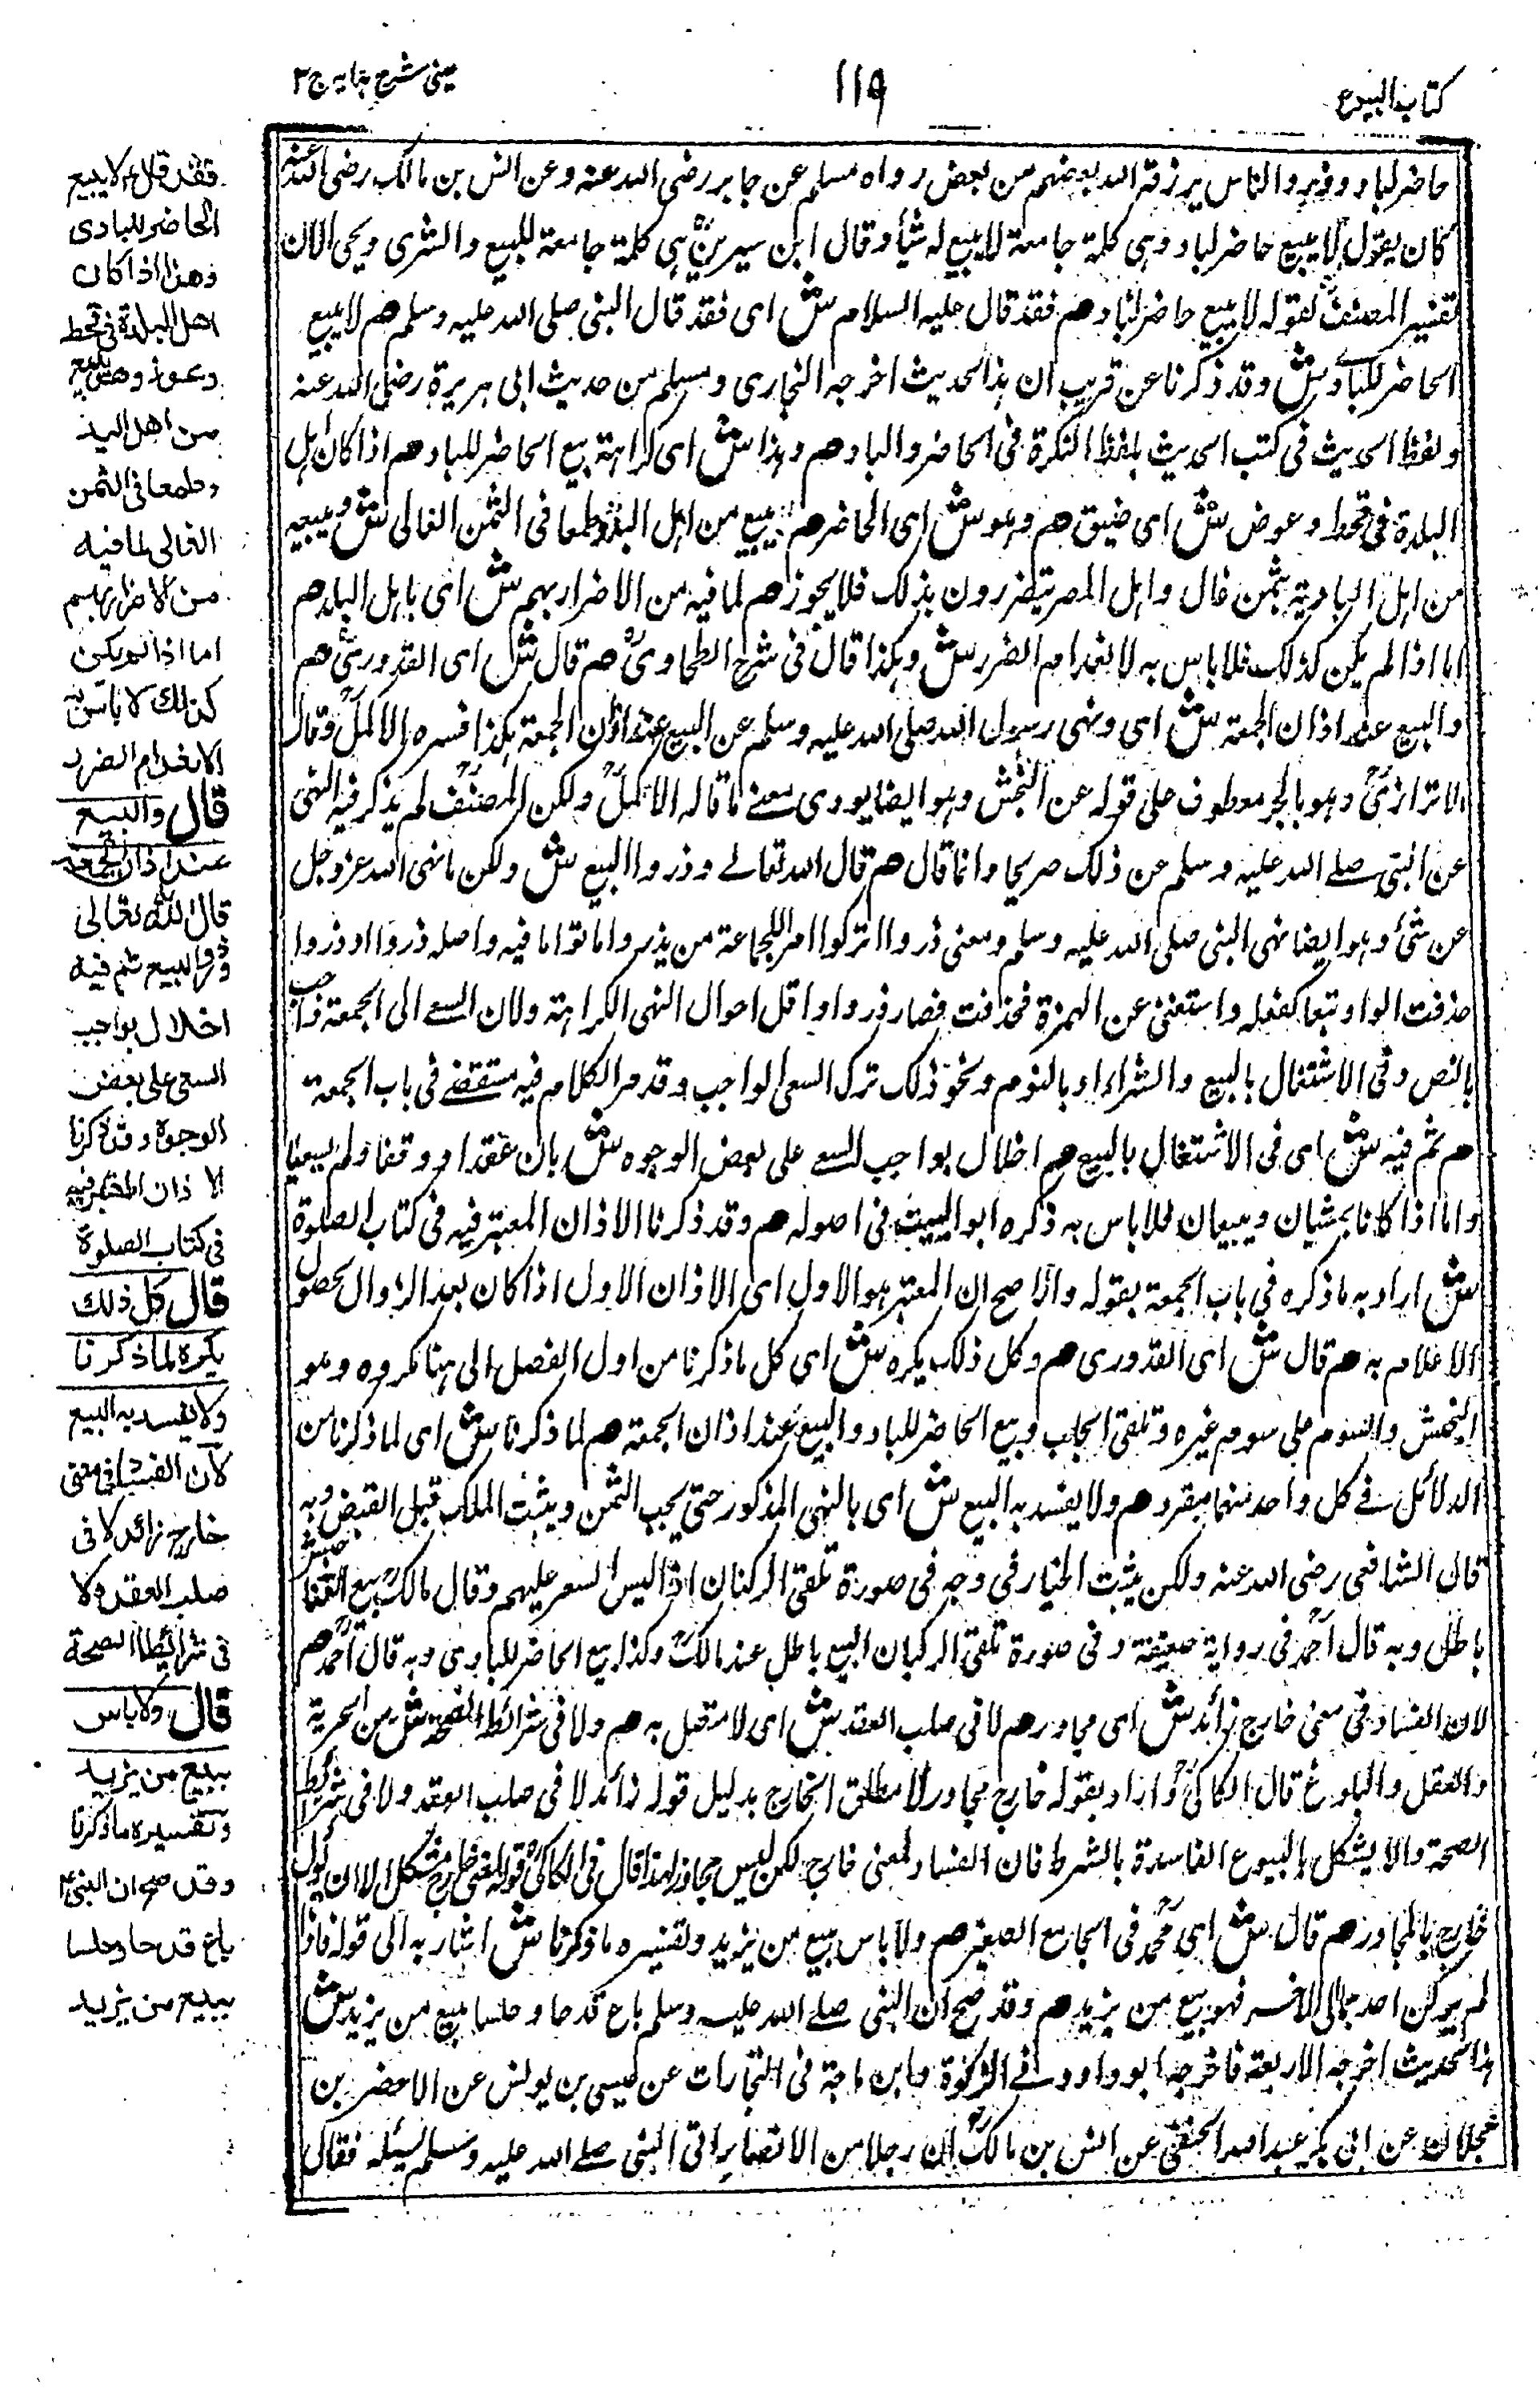 كتاب البيوع
١١٩
عينی شرح هدايه ج ٣
حاضر لباد وذروا الناس يرزق الله بعضهم من بعض رواه مسلم عن جابر رضى الله عنه وعن انس بن مالك رضى الله عنه
كان يقول لا يبيع حاضر لباد وهى كلمة جامعة لا يبيع له شيأ وقال ابن سيرين هى كلمة جامعة للبيع والشرى ويجى الان
تفسير المصنف لقوله لا يبيع حاضر لباد هم فقد قال عليه السلام ش اى فقد قال النبى صلى الله عليه وسلم هم لا يبيع
الحاضر للبادے ش وقد ذكرنا عن قريب ان هذا الحديث اخرجه البخارى ومسلم من حديث ابى هريرة رضى الله عنه
ولفظ الحديث فى كتب الحديث بلفظ النكرة فى الحاضر والباد هم وهذا ش اى كراهة بيع الحاضر للباد هم اذا كان اهل
البلدة فى قحط وعوض ش اى ضيق هم وهو ش اى الحاضر هم يبيع من اهل البدو طمعا فى الثمن الغالى ش ويبيعه
من اهل البادية بثمن غال واهل المصر يتضررون بذلك فلا يجوز هم لما فيه من الاضرار بهم ش اى باهل البلد هم
اما اذا لم يكن كذلك فلا باس به لانعدام الضرر ش وهكذا قال فى شرح الطحاوى هم قال ش اى القدورى هم
والبيع عند اذان الجمعة ش اى ونهى رسول الله صلى الله عليه وسلم عن البيع عند اذان الجمعة هكذا فسره الاكمل وقال
الاترازى وهو بالجر معطوف على قوله عن النجش وهو ايضا يودى معنے ما قاله الاكمل ولكن المصنف لم يذكر فيه النهى
عن النبى صلے الله عليه وسلم عن ذلك صريحا وانما قال هم قال الله تعالے وذروا البيع ش ولكن ما نهى الله عز وجل
عن شئ وهو ايضا نهى النبى صلى الله عليه وسلم ومعنى ذروا اتركوا امر للجماعة من يذر واماتوا ماضيه واصله ذروا اوذروا
حذفت الواو تبعا لفعله واستغنى عن الهمزة فحذفت فصار ذروا واقل احوال النهى الكراهة ولان السعے الى الجمعة واجب
بالنص وفى الاشتغال بالبيع والشراء او بالنوم ونحو ذلك ترك السعى الواجب وقد مر الكلام فيه مستقصے فى باب الجمعة
هم ثم فيه ش اى فى الاشتغال بالبيع هم اخلال بواجب السعے على بعض الوجوه ش بان عقدا ووقفا ولم يسعيا
واما اذا كانا يمشيان ويبيعان فلا باس به ذكره ابو اليسر فى اصوله هم وقد ذكرنا الاذان المعتبر فيه فى كتاب الصلوة
ش اراد به ما ذكره فى باب الجمعة بقوله والاصح ان المعتبر هو الاول اى الاذان الاول اذا كان بعد الزوال لحصول
الاعلام به هم قال ش اى القدورى هم وكل ذلك يكره ش اى كل ما ذكرنا من اول الفصل الى هنا مكروه وهو
النجش والسوم على سوم غيره وتلقى الجلب وبيع الحاضر للباد والبيع عند اذان الجمعة هم لما ذكرنا ش اى لما ذكرنا من
الدلائل فے كل واحد منها مقررة هم ولا يفسد به البيع ش اى بالنهى المذكور حتى يجب الثمن ويثبت الملك قبل القبض وبه
قال الشافعى رضى الله عنه ولكن يثبت الخيار فى وجه فى صورة تلقى الركبان اذا لبس السعر عليهم وقال مالك بيع
باطل وبه قال احمد فى رواية ضعيفة وفى صورة تلقى الركبان البيع باطل عند مالك وكذا بيع الحاضر للبادى وبه قال احمد هم
لان الفساد فى معنى خارج زائد ش اى مجاور هم لا فى صلب العقد ش اى لا متصل به هم ولا فى شرائط الصحة ش من الحرية
والعقل والبلوغ قال الكاكى واراد بقوله خارج مجاور لا مطلق الخارج بدليل قوله زائد لا فى صلب العقد ولا فى شرائط
الصحة والا يشكل بالبيوع الفاسدة بالشرط فان الفساد لمعنى خارج لكن ليس بمجاور لهذا قال فى الكاكى قوله لمعنى خارج مشكل الا ان يؤل
خارج بالمجاور هم قال ش اى محمد فى الجامع الصغير هم ولا باس ببيع من يزيد وتفسيره ما ذكرنا ش اشار به الى قوله فاذا
لم يركن احدهما الى الاخر فهو بيع من يزيد هم وقد صح ان النبى صلے الله عليه وسلم باع قدحا وحلسا ببيع من يزيد ش
هذا الحديث اخرجه الاربعة فاخرجه ابو داود فے الزكوة وابن ماجة فى التجارات عن عيسى بن يونس عن الاخضر بن
عجلان عن ابى بكر عبد الله الحنفى عن انس بن مالك ان رجلا من الانصار اتى النبى صلے الله عليه وسلم يسئله فقال
فقد قال ع لا يبيع
الحاضر للبادى
وهذا اذا كان
اهل البلدة فى قحط
وعوز وهو يبيع
من اهل البدو
طمعا فى الثمن
الغالى لما فيه
من الاضرار بهم
اما اذا لم يكن
كذلك لا باس به
لانعدام الضرر
قال والبيع
عند اذان الجمعة
قال الله تعالى
وذروا البيع ثم فيه
اخلال بواجب
السعى على بعض
الوجوة وقد ذكرنا
الاذان المعتبر فيه
فى كتاب الصلوة
قال كل ذلك
يكره لما ذكرنا
ولا يفسد به البيع
لان الفساد فى معنى
خارج زائد لا فى
صلب العقد ولا
فى شرائط الصحة
قال ولا باس
ببيع من يزيد
وتفسيره ما ذكرنا
وقد صح ان النبى ع
باع قدحا وحلسا
ببيع من يزيد